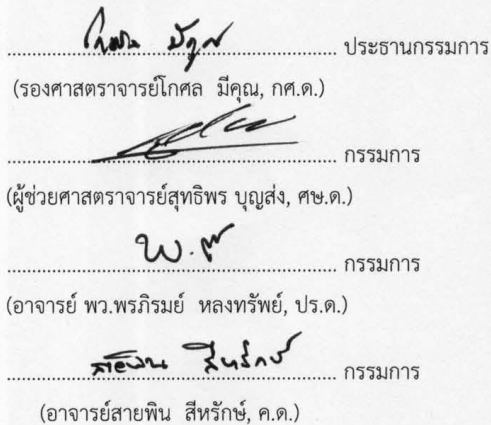 โกศล มีคุณ ประธานกรรมการ
(รองศาสตราจารย์โกศล มีคุณ, กศ.ด.)
กรรมการ
(ผู้ช่วยศาสตราจารย์สุทธิพร บุญส่ง, ศษ.ด.)
กรรมการ
(อาจารย์ พว.พรภิรมย์ หลงทรัพย์, ปร.ด.)
สายพิน สีหรักษ์ กรรมการ
(อาจารย์สายพิน สีหรักษ์, ค.ด.)